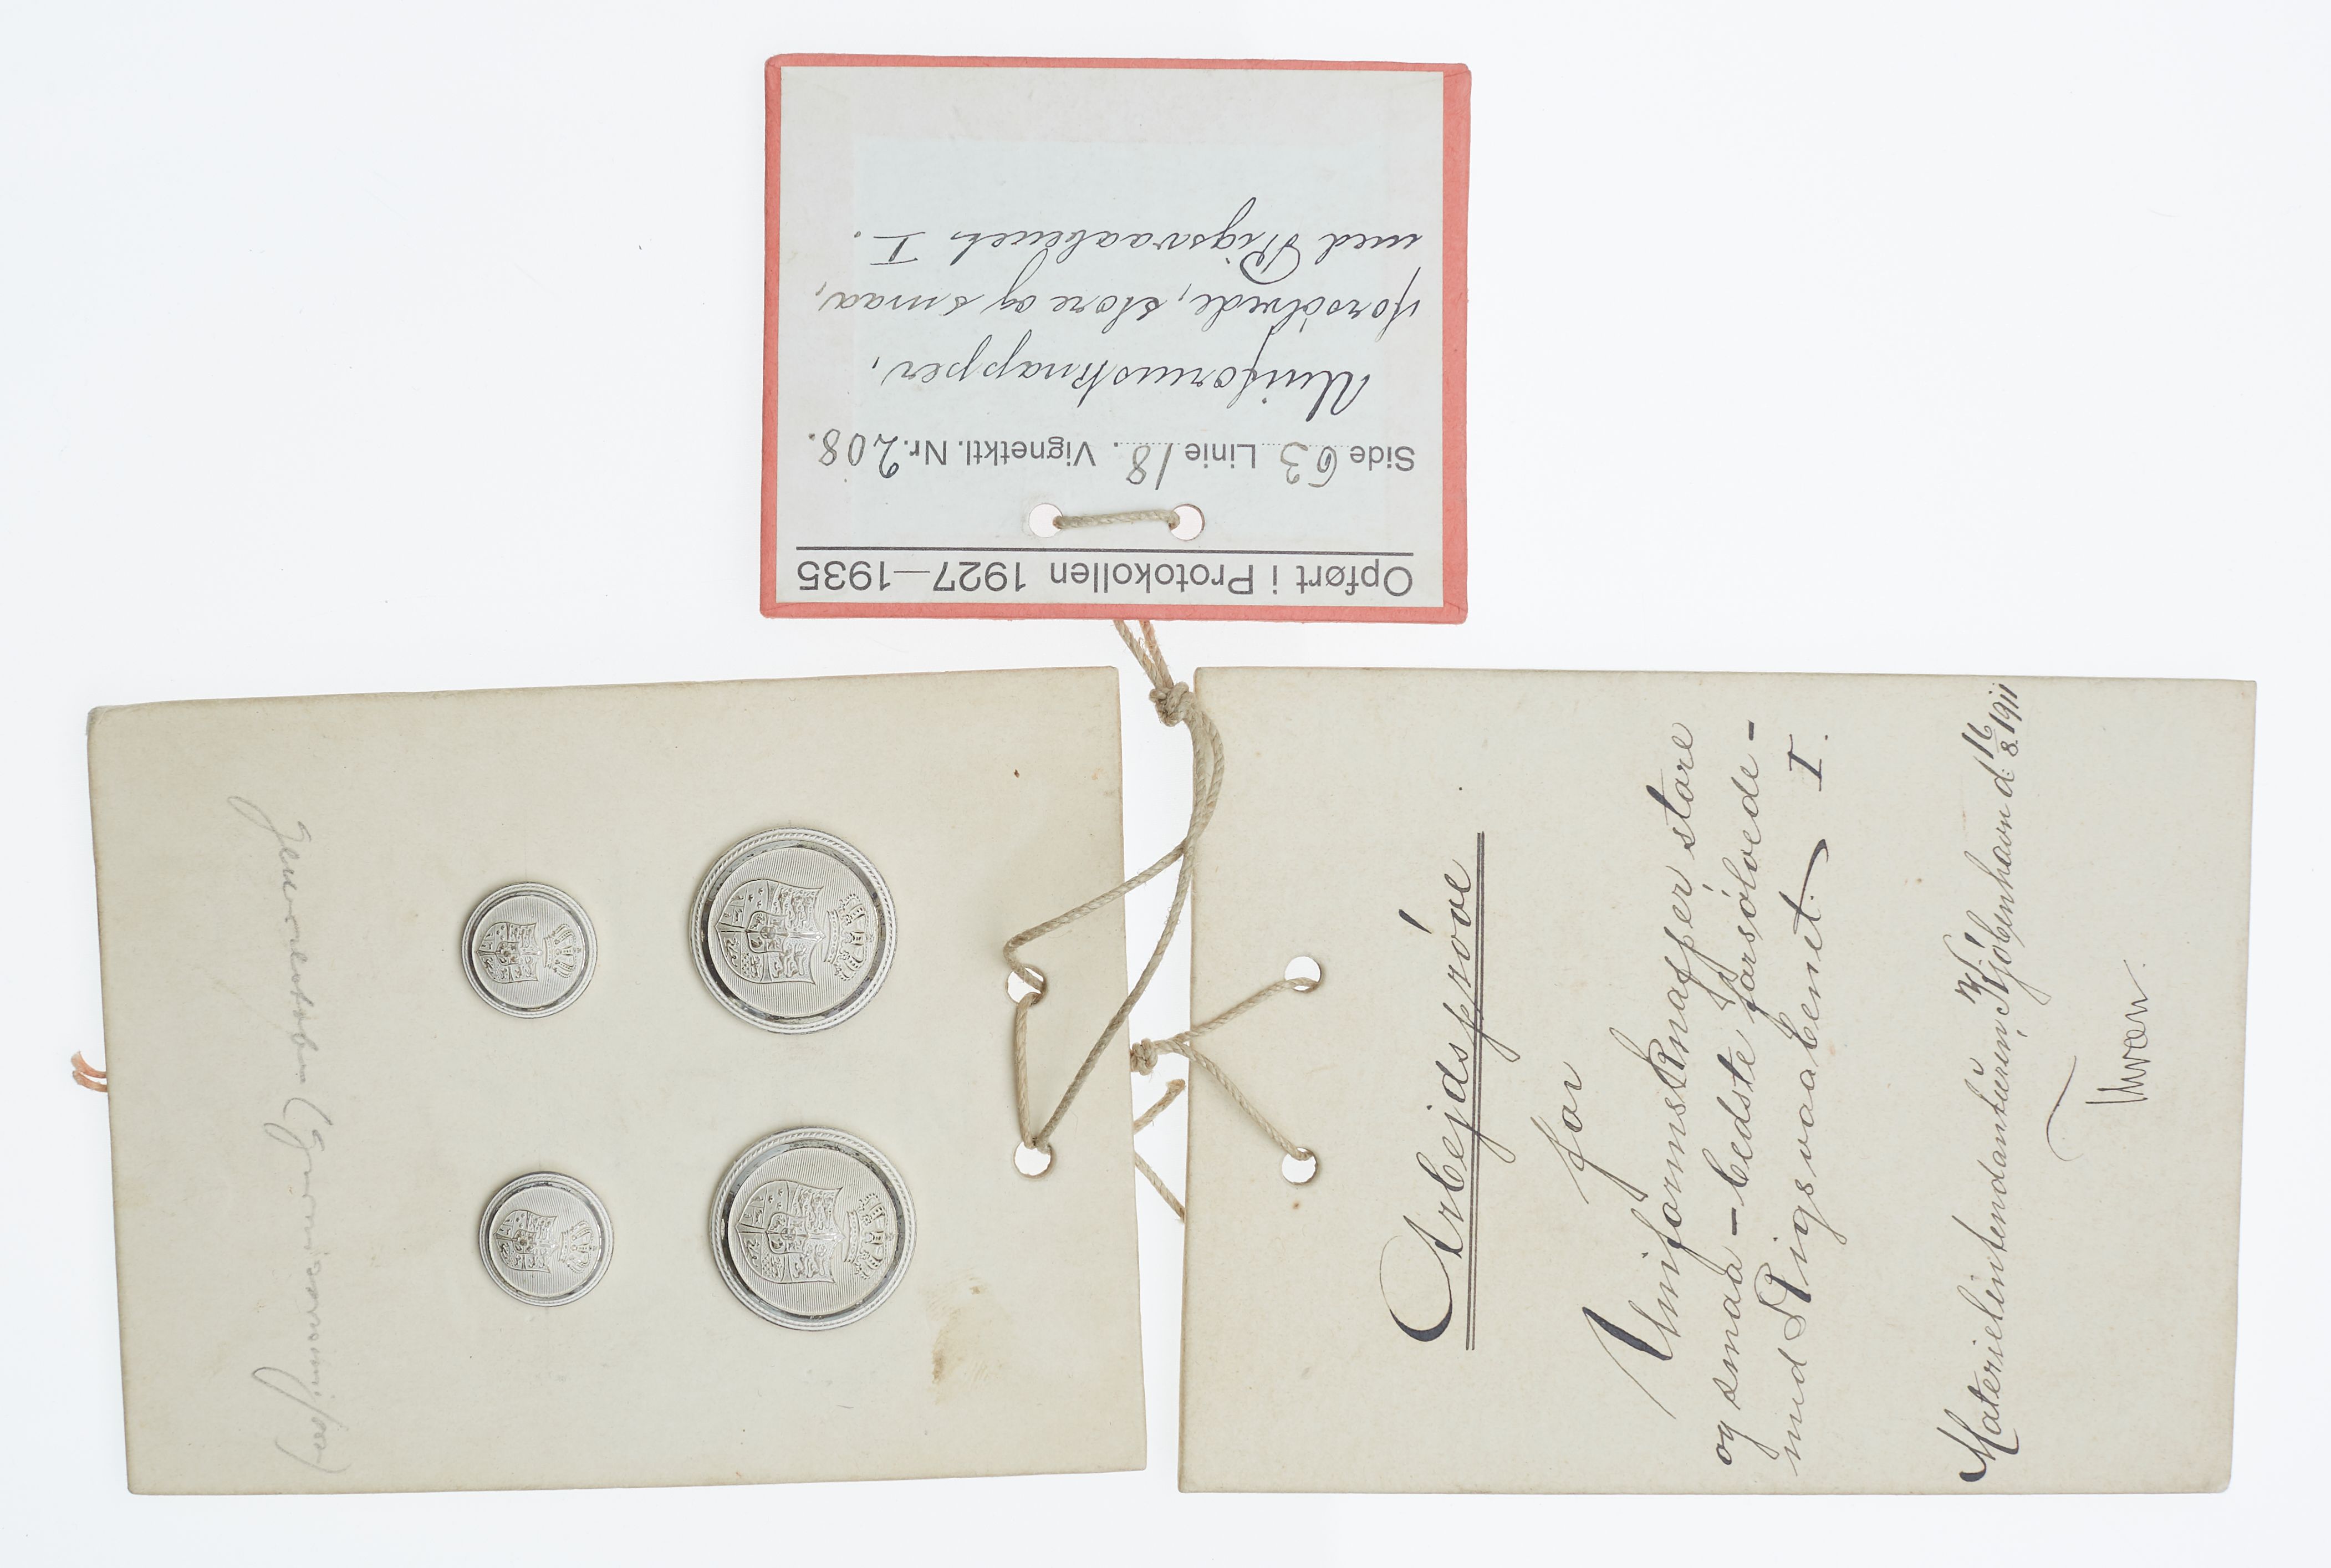 Opført i Protokollen 1927—1935
Side 63 Linie 18. Vignetktl. Nr. 208.
Uniformsknapper,
forsölvede, store og smaa,
med Rigsvaabenet I.
Generalstaben (
Arbejdspróve
for
Uniformsknapper store
og smaa - bedste forsólvede -
med Rigsvaabenet. I.
Materielintendanturen, Kjóbenhavn d. 16/8 1911